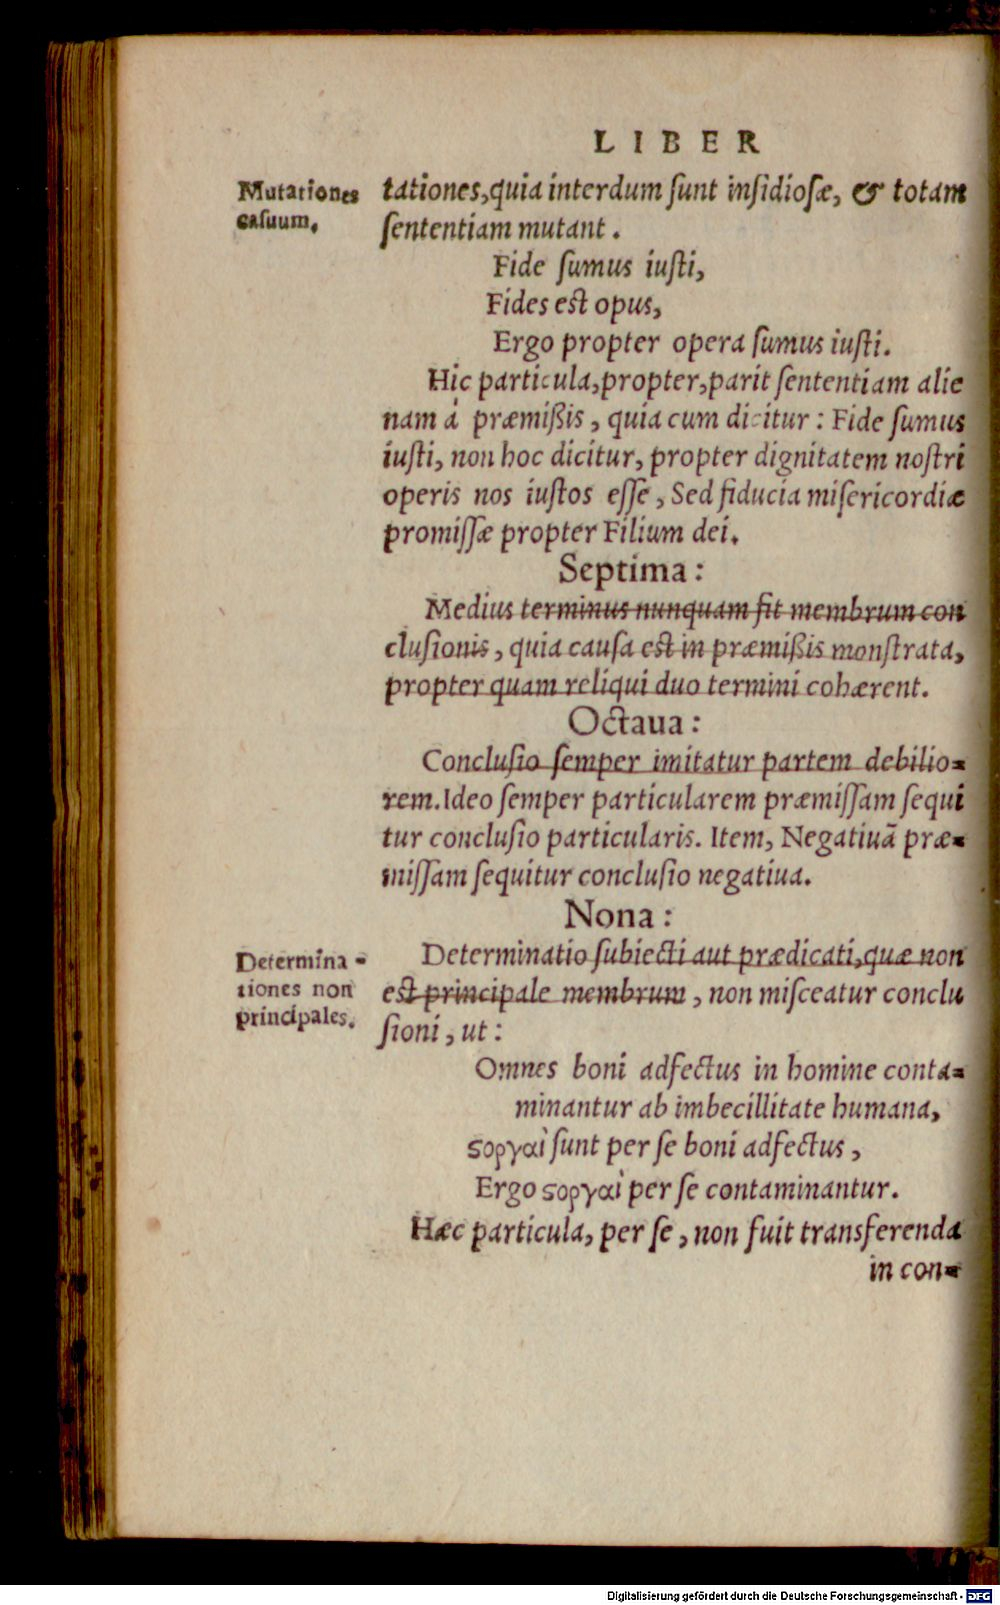 LIBER
Mutationes
casuum.
tationes, quia interdum ſunt inſidioſæ, & totam
ſententiam mutant.
Fide ſumus iuſti,
Fides eſt opus,
Ergo propter opera ſumus iuſti.
Hic particula, propter, parit ſententiam alie
nam á præmißis, quia cum dicitur: Fide ſumus
iuſti, non hoc dicitur, propter dignitatem noſtri
operis nos iuſtos eſſe, Sed fiducia miſericordiæ
promiſſæ propter Filium dei.
Septima:
Medius terminus nunquam fit membrum con
cluſionis, quia cauſa eſt in præmißis monſtrata,
propter quam reliqui duo termini cohærent.
Octaua:
Concluſio ſemper imitatur partem debilio=
rem. Ideo ſemper particularem præmiſſam ſequi
tur concluſio particularis. Item, Negatiuã præ=
miſſam ſequitur concluſio negatiua.
Nona:
Determina=
tiones non
principales.
Determinatio ſubiecti aut prædicati, quæ non
eſt principale membrum, non miſceatur conclu
ſioni, ut:
Omnes boni adfectus in homine conta=
minantur ab imbecillitate humana,
ϛοργαὶ ſunt per ſe boni adfectus,
Ergo ϛοργαὶ per ſe contaminantur.
Hæc particula, per ſe, non fuit transferenda
in con=
Digitalisierung gefördert durch die Deutsche Forschungsgemeinschaft - DFG